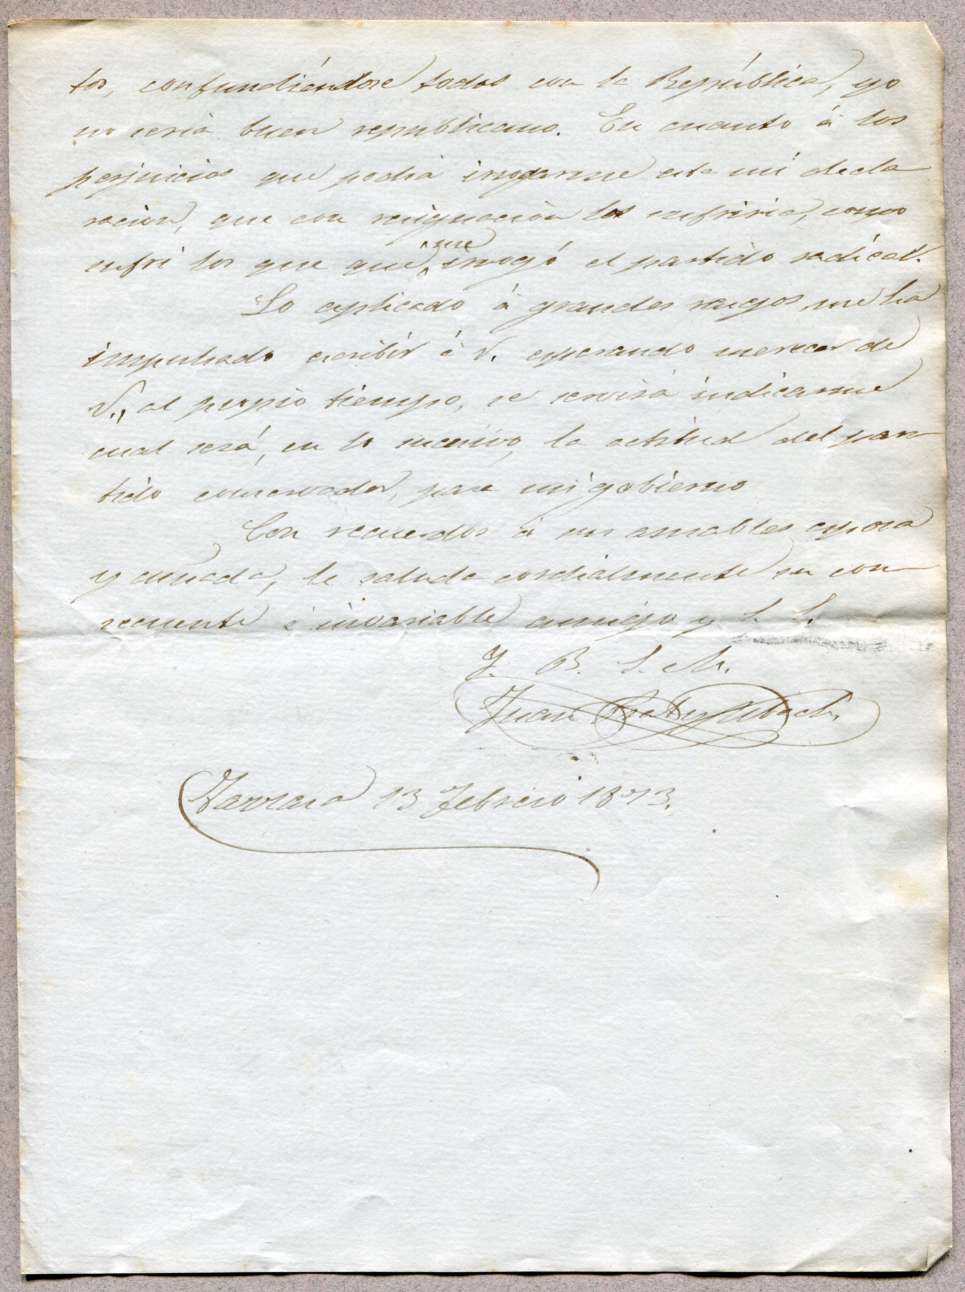 tos, confundiéndose todos con la República, yo
no seria buen republicano. En cuanto á los
perjuicios que podia irrogarme esta mi decla
racion, que con resignación los sufriria, como
sufri los que aquí me irrogó el partido radical.
Lo esplicado á grandes rasgos, me ha
impulsado escribir á V. esperando merecer de
V., al propio tiempo, se servirá indicarme
cual será, en lo sucesivo, la actitud del par
tido conservador, para mi gobierno
Con recuerdos á sus amables esposa
y cuñada, le saluda cordialmente su con
secuente é invariable amigo y S. S.
Q. B. S. M.
Juan
13 Febrero 1873.